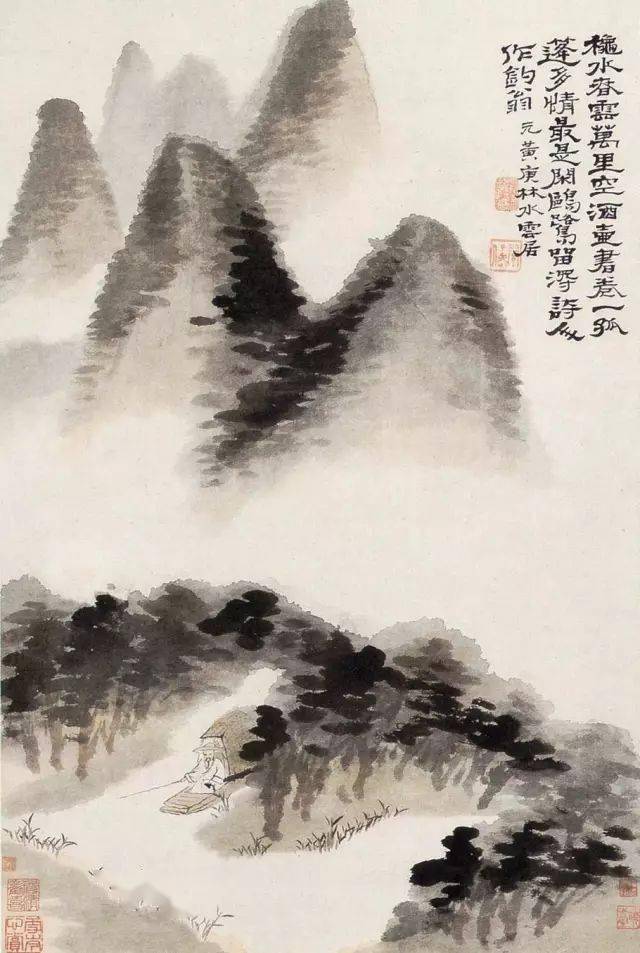 穐水春雲萬里空酒壺書卷一孤
篷多情最是閑鷗鷺留淂詩人
作釣翁 元黃庚林水雲居